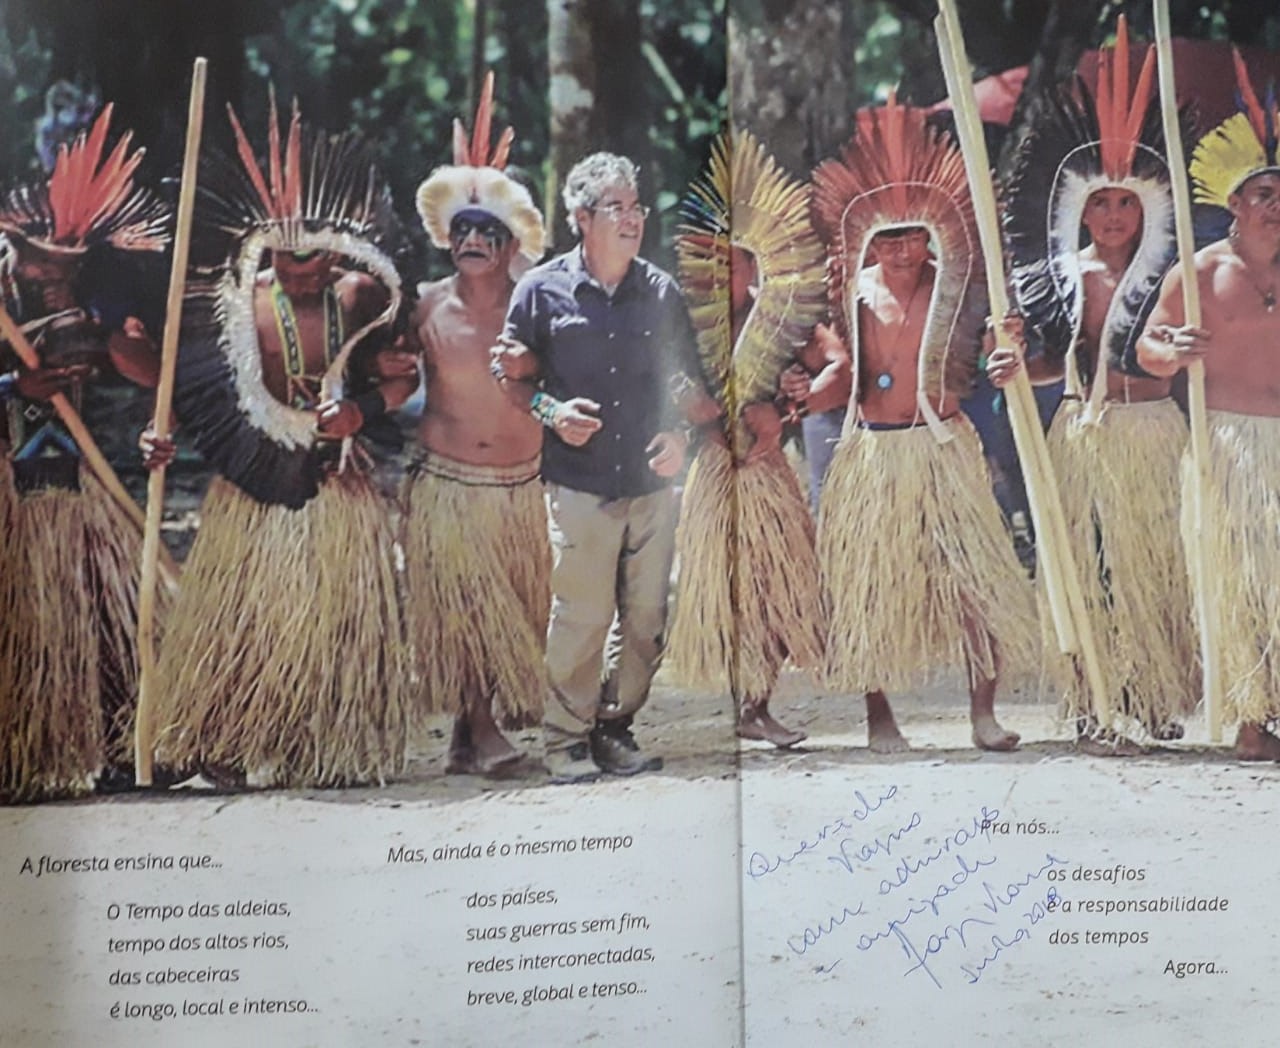 A floresta ensina que...
O Tempo das aldeias,
tempo dos altos rios,
das cabeceiras
é longo, local e intenso...
Mas, ainda é o mesmo tempo
dos países,
suas guerras sem fim,
redes interconectadas,
breve, global e tenso...
Querido
com admiração
e amizade
Jorge Viana
2018
Pra nós...
os desafios
e a responsabilidade
dos tempos
Agora...